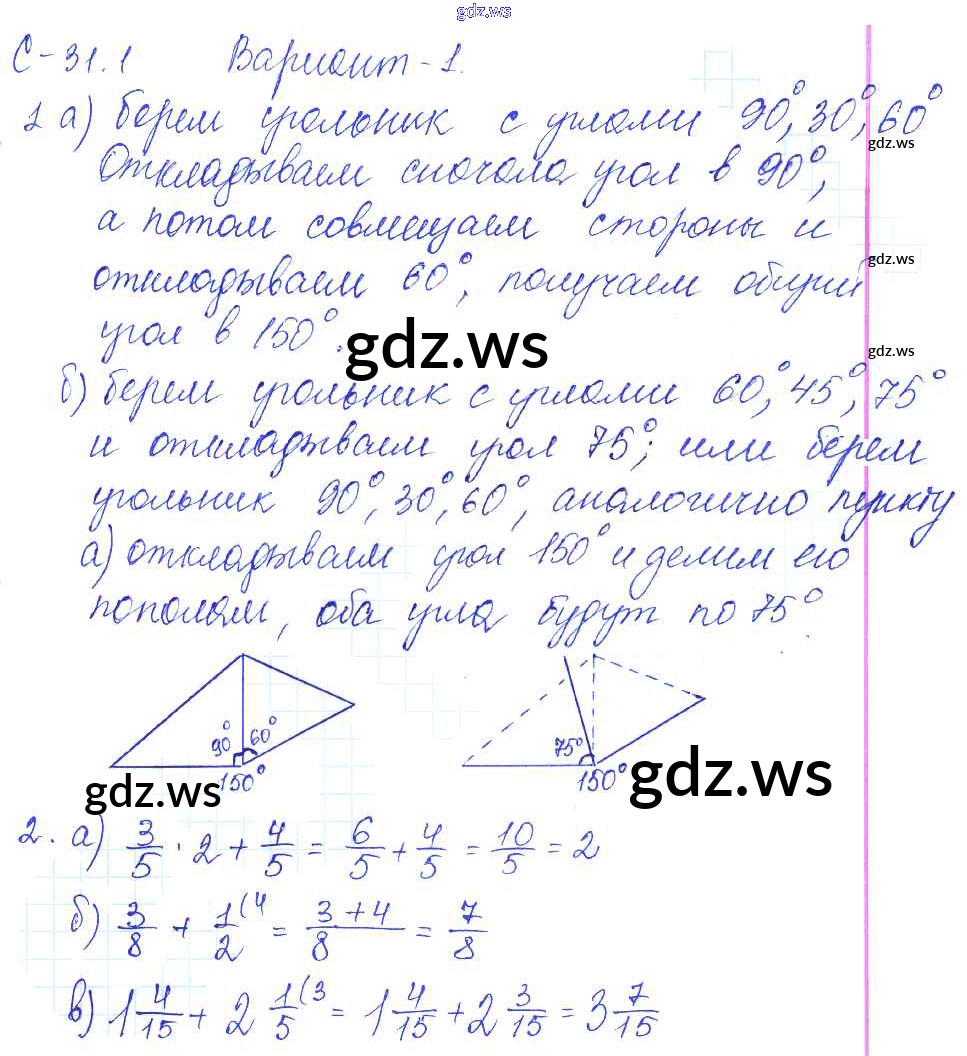 gdz.ws
С-31.1 Вариант-1.
1 а) берем угольник с углами 90°, 30°, 60°
gdz.ws
Откладываем сначала угол в 90°,
а потом совмещаем стороны и
gdz.ws
откладываем 60°, получаем общий
угол в 150°.
gdz.ws
gdz.ws
б) берем угольник с углами 60°, 45°, 75°
и откладываем угол 75°; или берем
угольник 90°, 30°, 60°, аналогично пункту
а) откладываем угол 150° и делим его
пополам, оба угла будут по 75°.
90° 60°
150°
75°
150°
gdz.ws
gdz.ws
2. а) 3/5 · 2 + 4/5 = 6/5 + 4/5 = 10/5 = 2
б) 3/8 + 1/2 (4 = 3+4/8 = 7/8
в) 1 4/15 + 2 1/5 (3 = 1 4/15 + 2 3/15 = 3 7/15